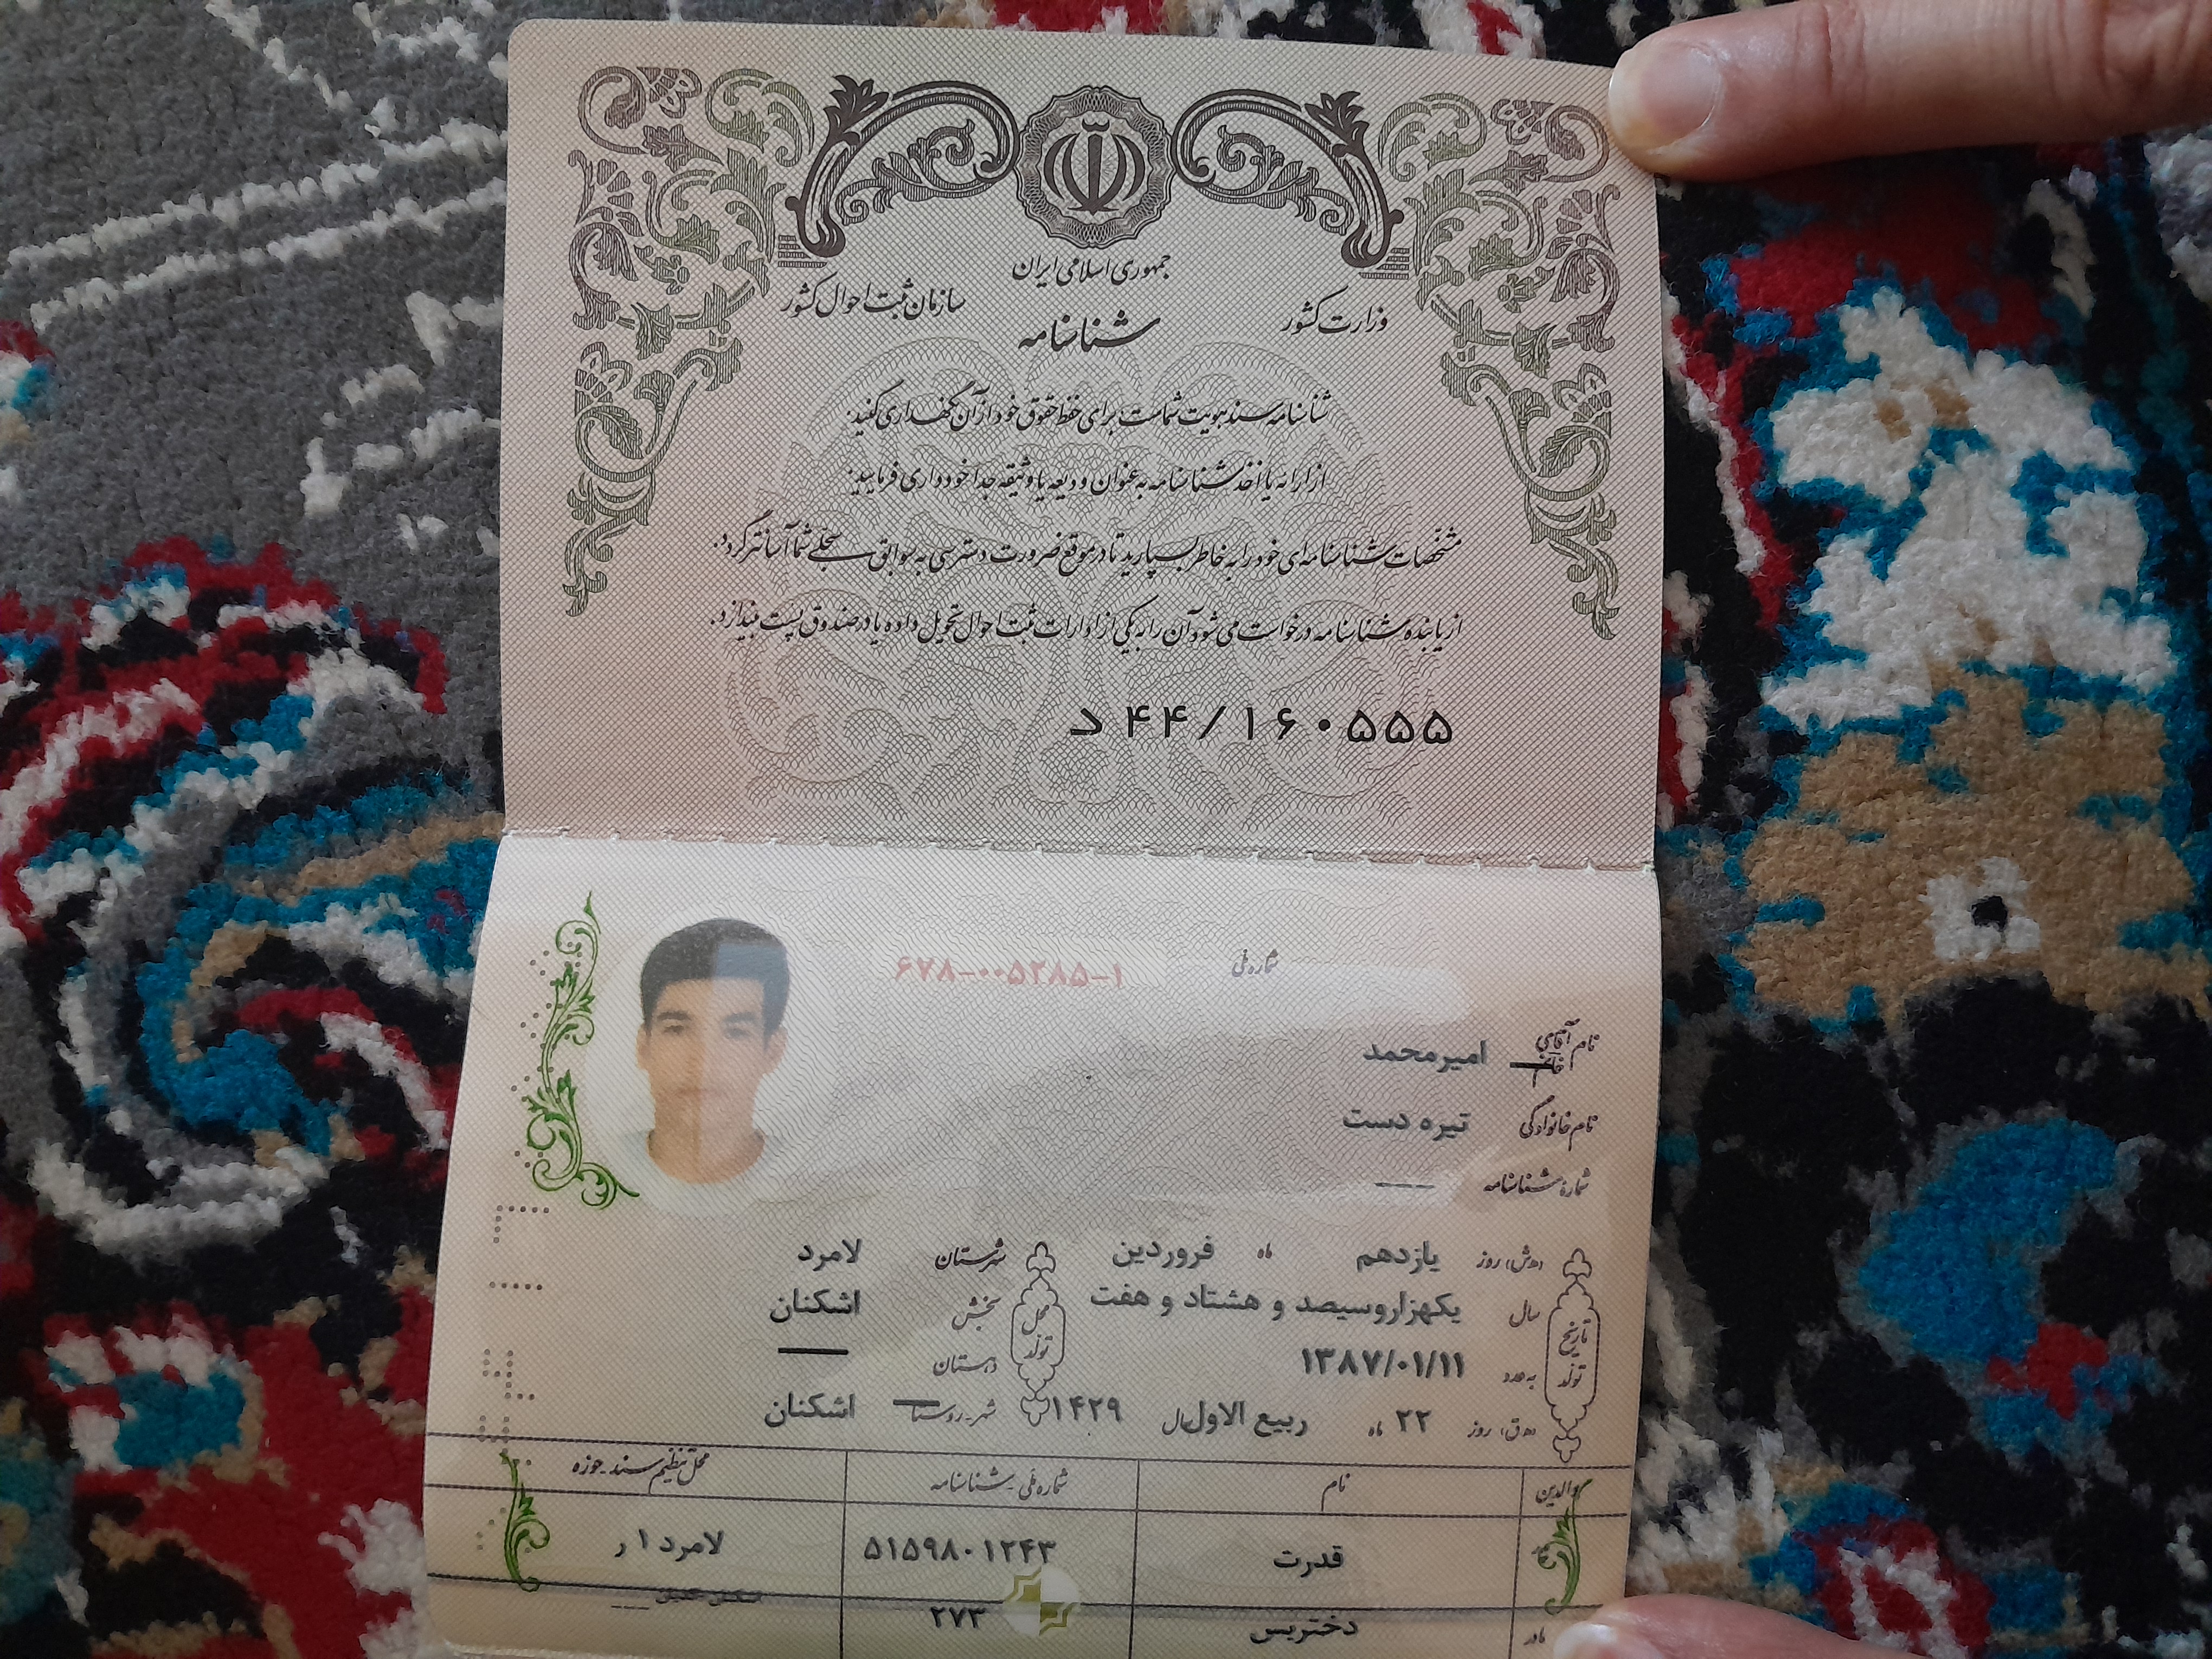 جمهوری اسلامی ایران
وزارت کشور
سازمان ثبت احوال کشور
شناسنامه
شناسنامه سند هویت شماست برای حفظ حقوق خود از آن نگهداری کنید.
از ارائه یا اخذ شناسنامه به عنوان ودیعه یا وثیقه جدا خودداری فرمایید.
مشخصات شناسنامه‌ای خود را به خاطر بسپارید تا در موقع ضرورت دسترسی به سوابق سجلی شما آسانتر گردد.
از یابنده شناسنامه درخواست می‌شود آن را به یکی از ادارات ثبت احوال تحویل داده یا در صندوق پست بیندازد.
د ۴۴/۱۶۰۵۵۵
شماره ملی ۶۷۸-۰۰۵۲۸۵-۱
نام آقای خانم امیرمحمد
نام خانوادگی تیره دست
شماره شناسنامه ——
تاریخ تولد
(ه.ش) روز یازدهم ماه فروردین
سال یکهزاروسیصد و هشتاد و هفت
به عدد ۱۳۸۷/۰۱/۱۱
(ه.ق) روز ۲۲ ماه ربیع الاول سال ۱۴۲۹
محل تولد
شهرستان لامرد
بخش اشکنان
دهستان ——
شهر-روستا اشکنان
والدین نام شماره ملی-شناسنامه محل تنظیم سند-حوزه
پدر قدرت ۵۱۵۹۸۰۱۲۴۳ لامرد ۱ ر
مادر دختربس ۲۷۳